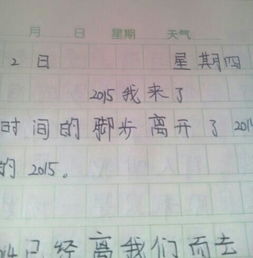 月 日 星期 天气
2 日 星期四
2015我来了
时间的脚步离开了201
的2015。
已经离我们而去